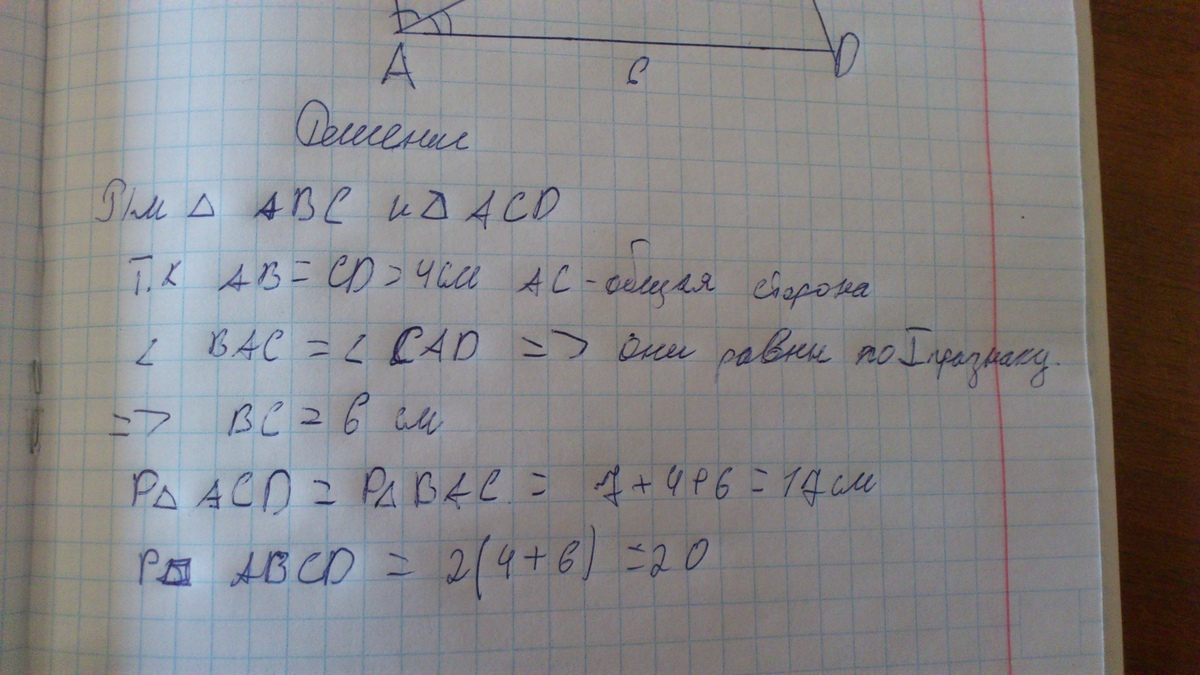 A
6
D
Решение
Р/м △ ABC и △ ACD
Т.К AB = CD = 4см AC - общая сторона
∠ BAC = ∠ CAD => они равны по I признаку.
=> BC = 6 см
P△ ACD = P△ BAC = 7+4+6 = 17см
P□ ABCD = 2(4+6) = 20